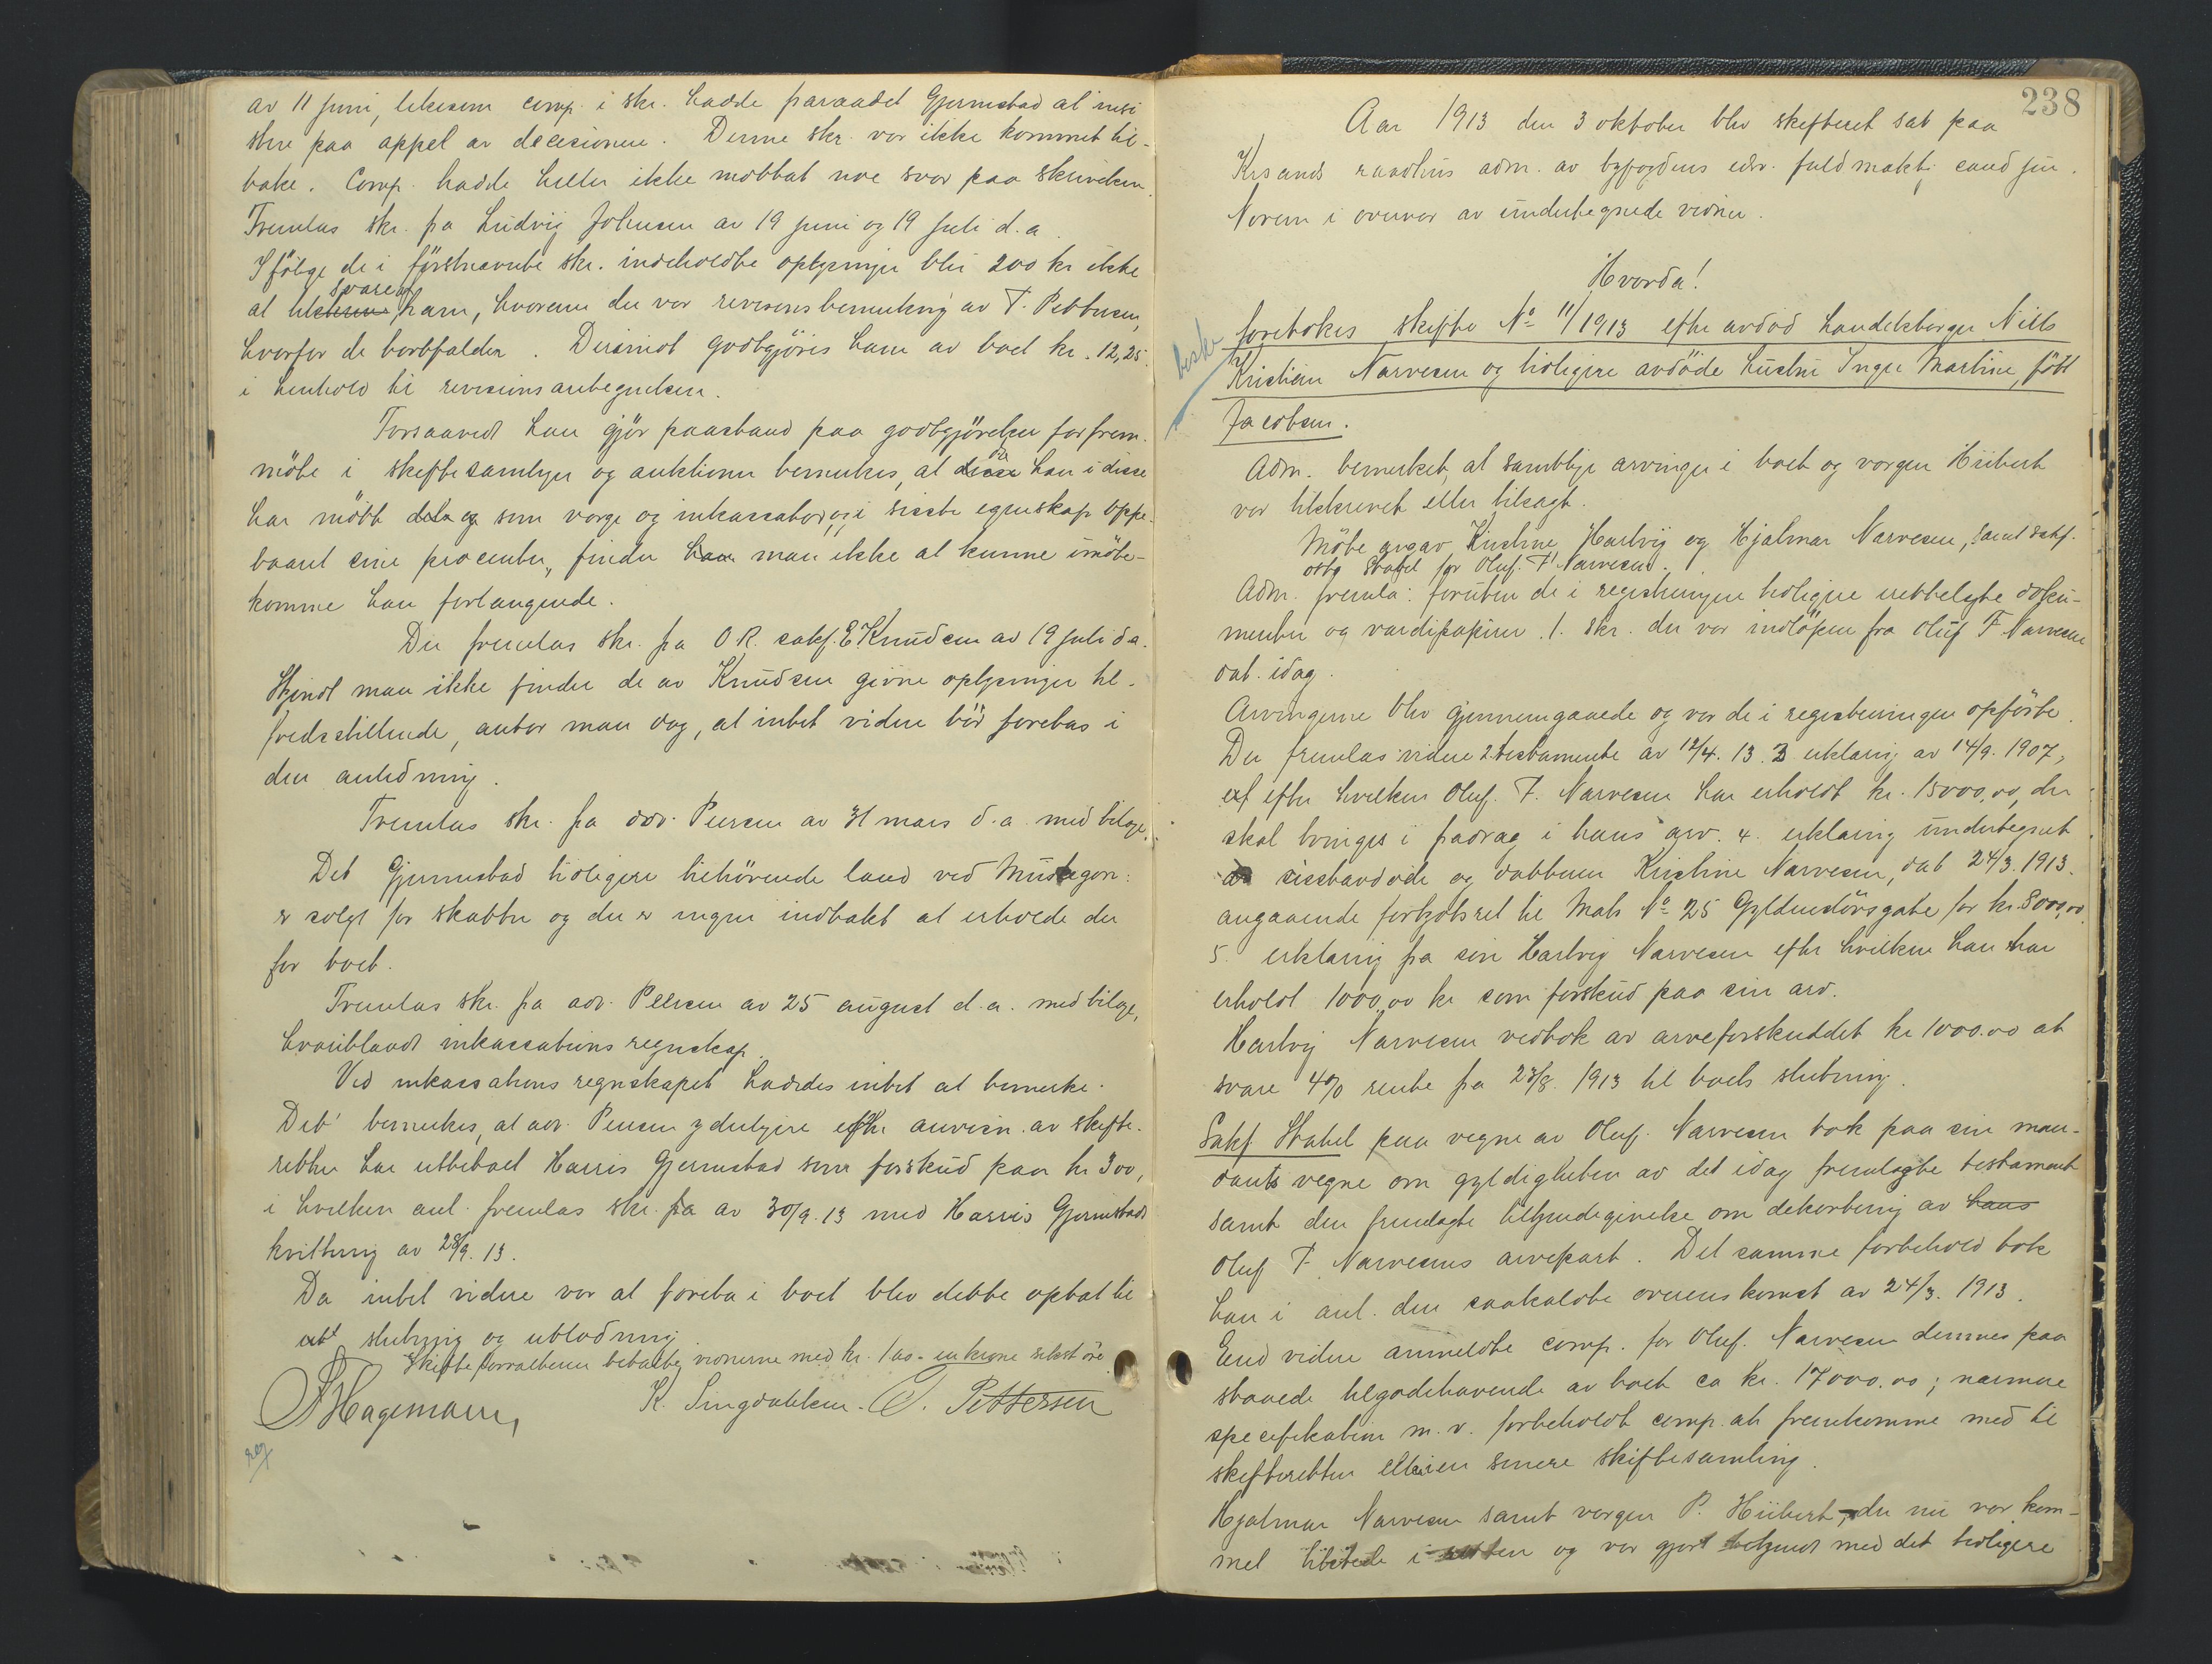 av 11 juni, likesom comp. i skr. hadde fraraadet Gjermstad at insi
stere paa appel av decisionen. Denne skr. var ikke kommet til-
bake. Comp. hadde heller ikke mottat noe svar paa skrivelsen.
Fremlas skr. fra Ludvig Johnsen av 19 juni og 19 juli d.a.
Ifölge de i förstnævnte skr. indeholdte oplysninger blir 200 kr ikke
at svare av ham, hvorom der var revisorsbemerkning av T. Pettersen,
hvorfor de bortfalder. Derimot godtgjöres ham av boet kr. 12,25
i henhold til revisionsantegnelsen.
Forsaavidt han gjör paastand paa godtgjörelse for frem-
möte i skiftesamlinger og auktioner bemerkes, at da han i disse
har mött som verge og inkassator og i sisste egenskap oppe-
baaret sine procenter, finder man ikke at kunne imöte-
komme han forlangende.
Der fremlas skr. fra O.R. sakf. E Knudsen av 19 juli d.a.
Skjönt man ikke finder de av Knudsen givne oplysninger til-
fredsstillende, antar man dog, at intet videre bör foretas i
den anledning.
Fremlas skr. fra adv. Peersen av 31 mars d.a. med bilage.
Det Gjermstad tidligere tilhörende land ved Muskegon
er solgt for skatter og der er ingen indtakt at erholde der
for boet.
Fremlas skr. fra adv. Peersen av 25 august d.a. med bilage,
hvoriblandt inkassations regnskap.
Ved inkassations regnskapet haddes intet at bemerke.
Det bemerkes, at adv. Peersen ydeligere efter anvisn. av skifte-
retten har utbetalt Harris Gjermstad som forskud paa kr 300,
i hvilken anl. fremlas skr. fra av 30/9.13 med Harris Gjermstads
kvittering av 28/9.13.
Da intet videre var at foreta i boet blev dette optat til
slutning og utlodning.
Skifteforvalteren betalte vidnerne med kr. 1,60 - en krone sekst öre.
Hagemann, K. Lingdalsen. T. Pettersen
reg
238
Aar 1913 den 3 oktober blev skifteret sat paa
Krsands raadhus adm. av byfogdens edsv. fuldmækt. cand jur.
Noren i overvær av undertegnede vidner.
Hvorda!
foretokes skifte No 11/1913 efter avdöd handelsborger Nils
Kristian Narvesen og tidligere avdöde hustru Inger Martine, född
Jacobsen.
Adm. bemerket, at samtlige arvinger i boet og vergen Hübert
var tilskrevet eller tilsagt.
Möte gaves av Kristine, Hartvig og Hjalmar Narvesen, samt sakf.
Stabel for Oluf. F. Narvesen.
Adm. fremla: foruten de i registreringen tidligere vedlagte doku-
menter og værdipapirer. 1. skr. der var indlöpen fra Oluf F Narvesen
dat. idag.
Arvingerne blev gjennemgaaede og var de i registreringen opförte.
Der fremlas videre 2 testamente av 12/4.13. 3 erklæring av 14/9. 1907,
efter hvilken Oluf. F. Narvesen har erholdt kr. 15000,00, der
skal bringes i fradrag i hans arv. 4. erklæring undertegnet
av sisstavdöde og datteren Kristine Narvesen, dat 24/3. 1913.
angaaende forkjöbsret til Matr No 25 Gyldenlövsgate for kr. 8000,00.
5. erklæring fra sön Hartvig Narvesen efter hvilken han har
erholdt 1000,00 kr som forskud paa sin arv.
Hartvig Narvesen vedtok av arveforskuddet kr 1000.00 at
svare 4% rente fra 23/8. 1913 til boets slutning.
Sakf. Stabel paa vegne av Oluf. Narvesen tok paa sin man-
dants vegne om gyldigheten av det idag fremlagte testament
samt den fremlagte tilkjendegivelse om dekortering av hans
Oluf F. Narvesens arvepart. Det samme forbehold tok
han i anl. den saakaldte overenskomst av 24/3. 1913.
End videre anmeldte comp. for Oluf. Narvesen dennes paa
staaede tilgodehavende av boet ca kr. 17000.00; nærmere
specifikation m.v. forbeholdt comp. at fremkomme med til
skifteretten eller i en senere skiftesamling.
Hjalmar Narvesen samt vergen P. Hübert, der nu var kom-
met tilstede i retten og var gjort bekjendt med det tidligere